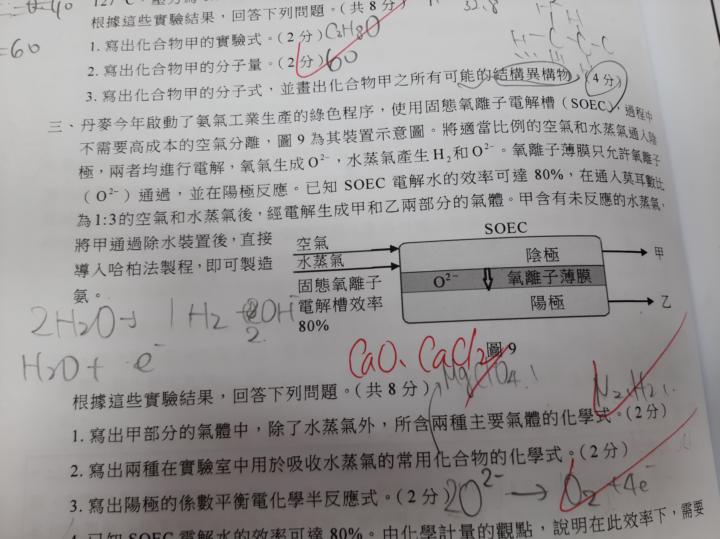 根據這些實驗結果，回答下列問題。（共 8 分）
1. 寫出化合物甲的實驗式。（2 分）C3H8O
2. 寫出化合物甲的分子量。（2 分）60
3. 寫出化合物甲的分子式，並畫出化合物甲之所有可能的結構異構物。（4 分）
=60
32.8
三、丹麥今年啟動了氨氣工業生產的綠色程序，使用固態氧離子電解槽（SOEC），過程中
不需要高成本的空氣分離，圖 9 為其裝置示意圖。將適當比例的空氣和水蒸氣通入陰
極，兩者均進行電解，氧氣生成 O²⁻，水蒸氣產生 H₂和 O²⁻。氧離子薄膜只允許氧離子
（O²⁻）通過，並在陽極反應。已知 SOEC 電解水的效率可達 80%，在通入莫耳數比
為1:3的空氣和水蒸氣後，經電解生成甲和乙兩部分的氣體。甲含有未反應的水蒸氣，
將甲通過除水裝置後，直接
導入哈柏法製程，即可製造
氨。
SOEC
空氣
水蒸氣
固態氧離子
電解槽效率
80%
陰極
O²⁻
氧離子薄膜
陽極
甲
乙
圖 9
H2O + e⁻
CaO、CaCl2
根據這些實驗結果，回答下列問題。（共 8 分）
N2、H2
1. 寫出甲部分的氣體中，除了水蒸氣外，所含兩種主要氣體的化學式。（2 分）
2. 寫出兩種在實驗室中用於吸收水蒸氣的常用化合物的化學式。（2 分）
3. 寫出陽極的係數平衡電化學半反應式。（2 分）2O²⁻ → O2 + 4e⁻
4. 已知 SOEC 電解水的效率可達 80%。由化學計量的觀點，說明在此效率下，需要